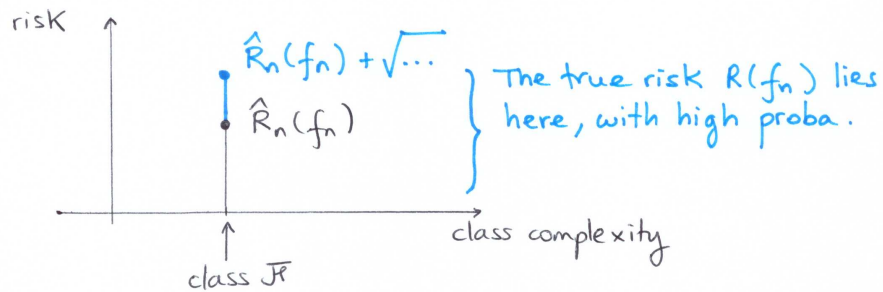 risk
R̂n(fn) + √...
R̂n(fn)
The true risk R(fn) lies
here, with high proba.
class complexity
class ℱ